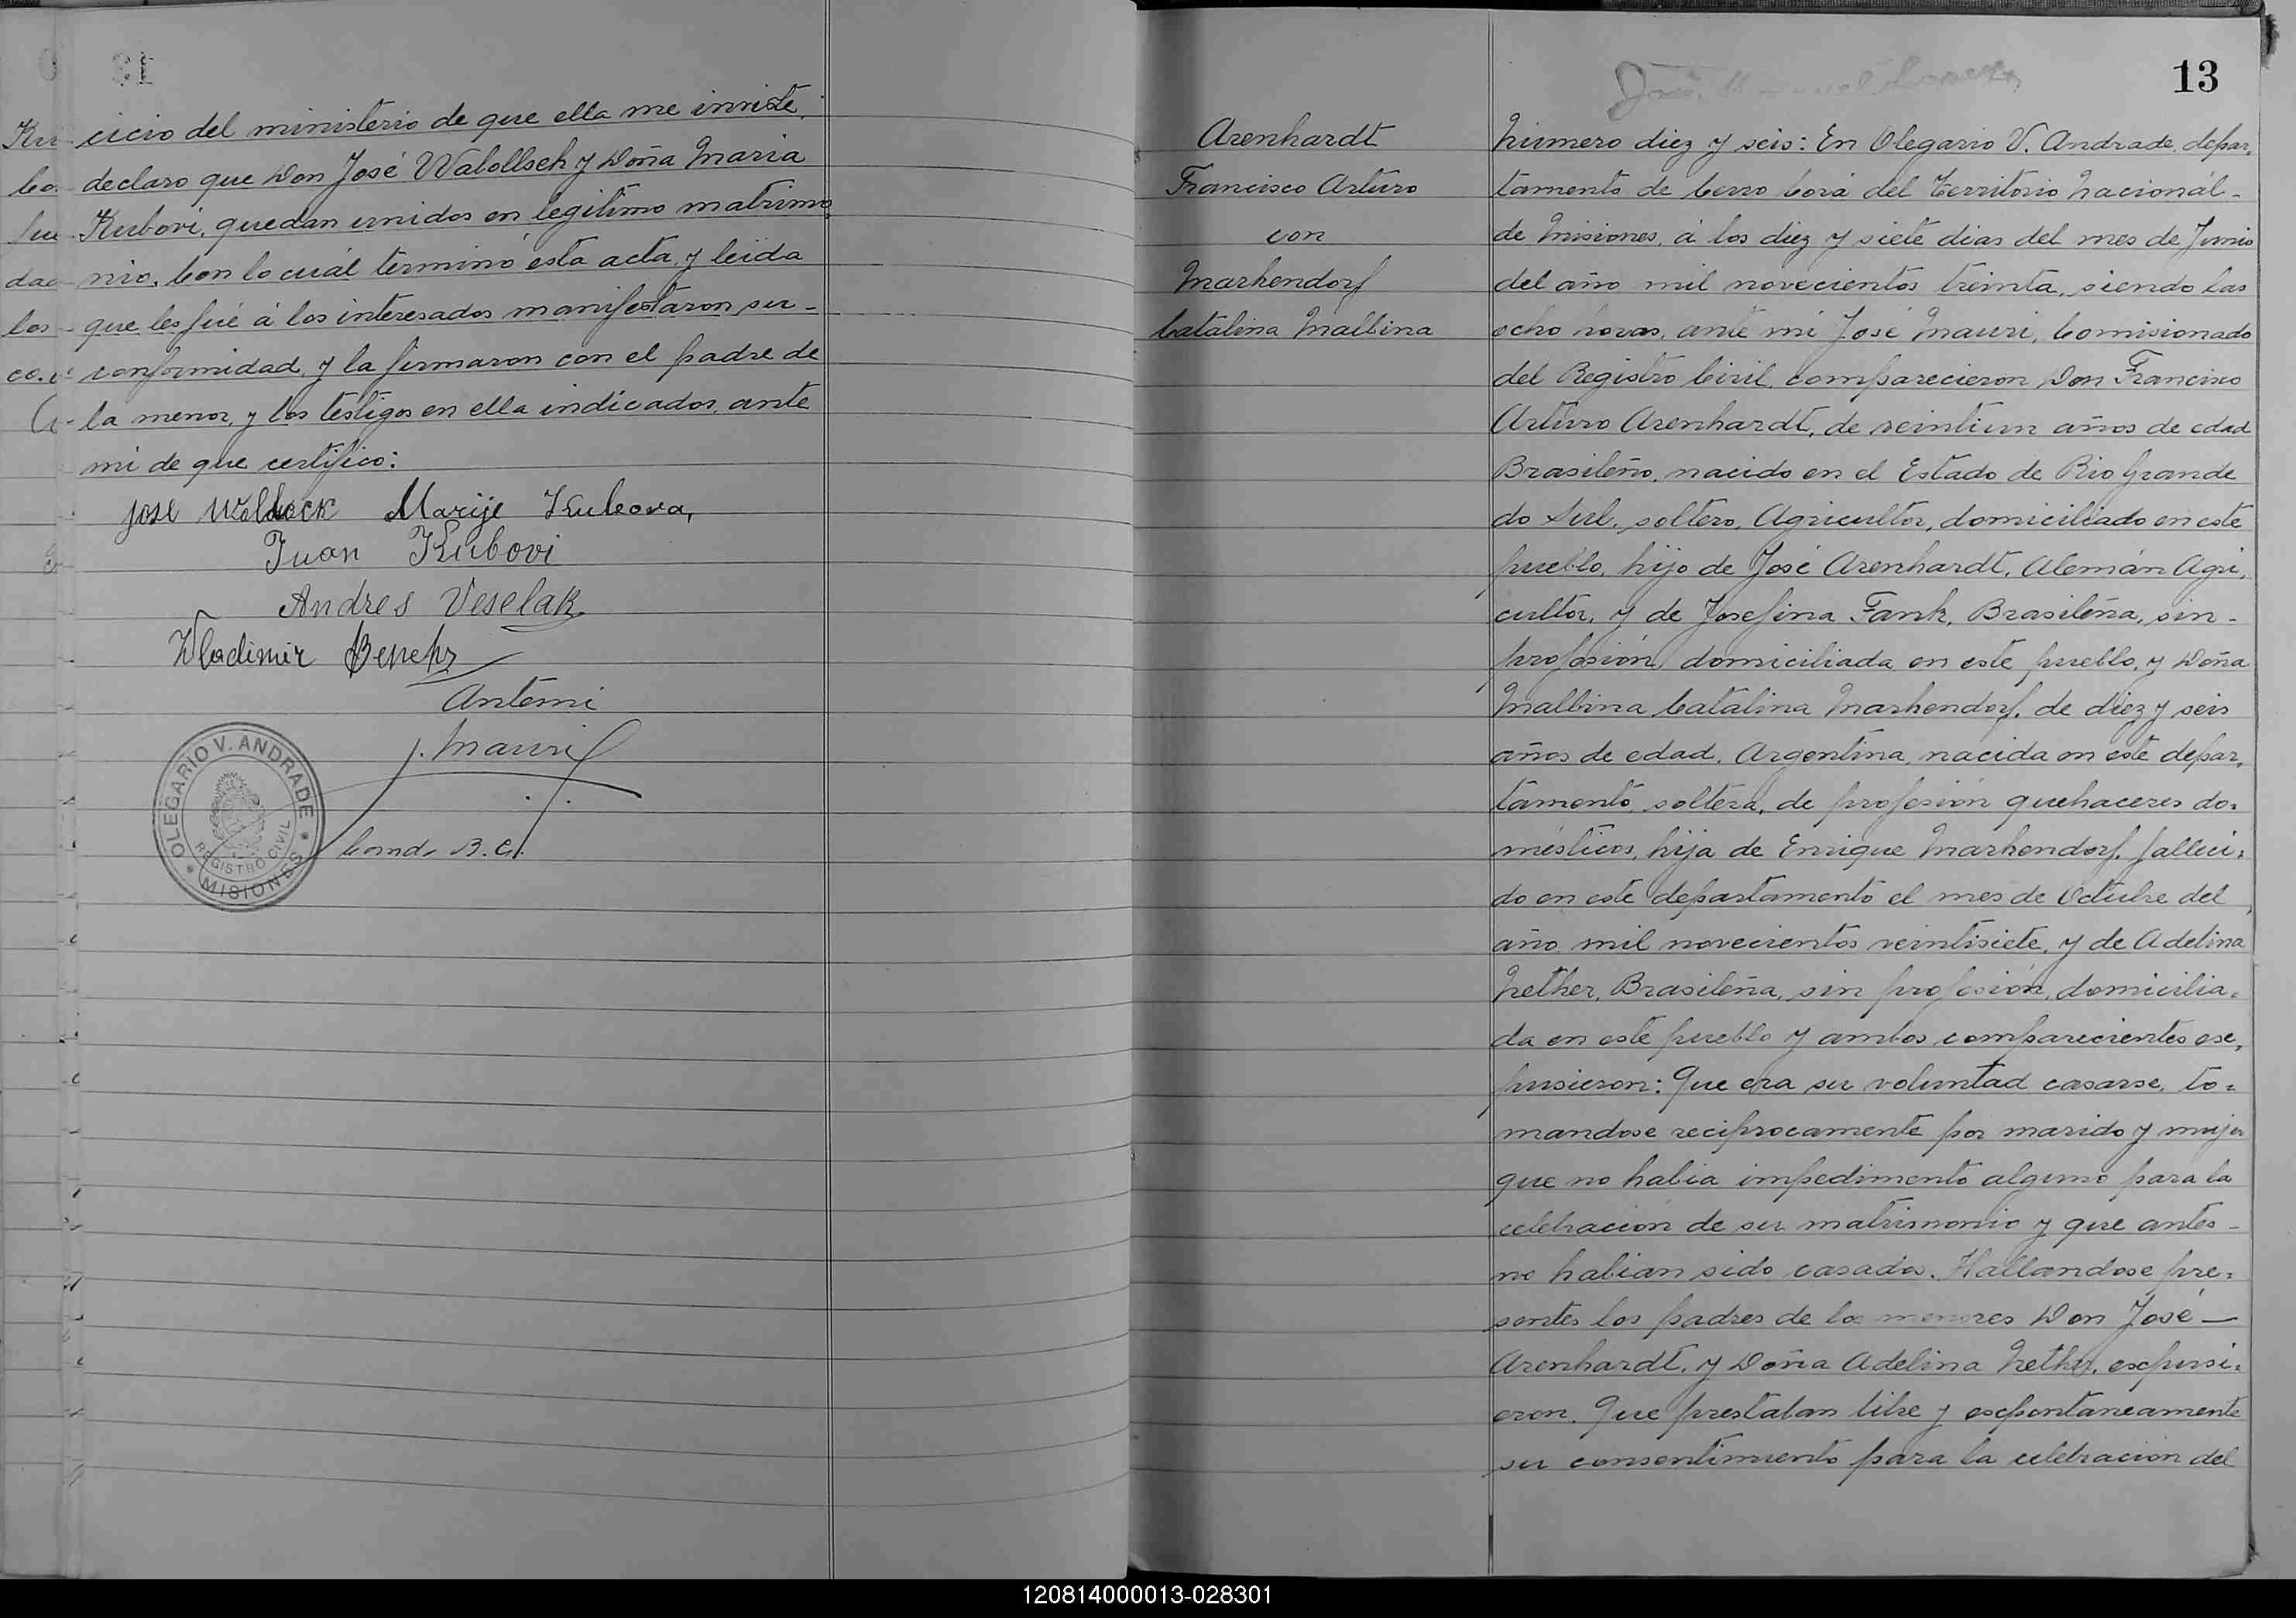 cicio del ministerio de que ella me inviste,
declaro que Don José Wabollsek y Doña Maria
Kubovi, quedan unidos en legitimo matrimo,
nio, Con lo cuál terminó esta acta, y leida
que les fué á los interesados manifestaron su -
conformidad, y la firmaron con el padre de
la menor, y los testigos en ella indicados, ante
mi de que certifico:
Jose Marije
Juan Kubovi
Andres Veselak
Wladimir
Antemi
J. Mauri
Comdo R. C.
OLEGARIO V. ANDRADE
REGISTRO CIVIL
* MISIONES *
13
Arenhardt
Francisco Arturo
con
Markendorf
Catalina Malbina
Número diez y seis: En Olegario V. Andrade, depar,
tamento de Cerro Corá del Territorio Nacionál -
de Misiones, á los diez y siete dias del mes de Junio
del año mil novecientos treinta, siendo las
ocho horas, ante mi José Mauri, Comisionado
del Registro Civil, comparecieron Don Francisco
Arturo Arenhardt, de veintiun años de edad
Brasileño, nacido en el Estado de Rio Grande
do Sul, soltero, Agricultor, domiciliado en este
pueblo, hijo de José Arenhardt, Alemán Agri,
cultor, y de Josefina Fank, Brasileña, sin -
profesión, domiciliada en este pueblo, y Doña
Malbina Catalina Markendorf, de diez y seis
años de edad, Argentina, nacida en este depar,
tamento, soltera, de profesión quehaceres do=
mésticos, hija de Enrique Markendorf, falleci=
do en este departamento el mes de Octubre del
año mil novecientos veintisiete, y de Adelina
Nether, Brasileña, sin profesión, domicilia=
da en este pueblo y ambos comparecientes ex,
pusieron: Que era su voluntad casarse, to=
mandose reciprocamente por marido y mujer
que no habia impedimento alguno para la
celebracion de su matrimonio y que antes -
no habian sido casados. Hallandose pre=
sentes los padres de los menores Don José —
Arenhardt, y Doña Adelina Nether, expusi=
eron. Que prestaban libre y expontaneamente
su consentimiento para la celebracion del
120814000013-028301